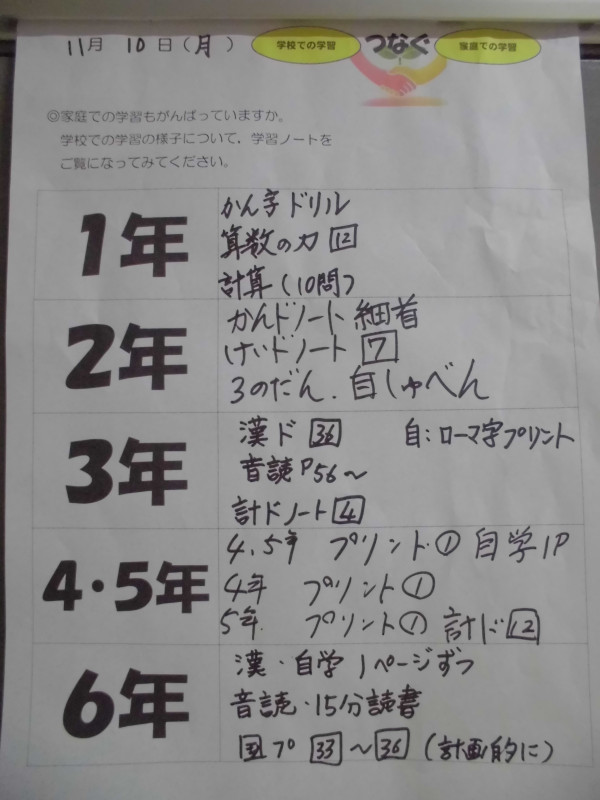 11月 10日(月) 学校での学習 つなぐ 家庭での学習
◎家庭での学習もがんばっていますか。
学校での学習の様子について、学習ノートを
ご覧になってみてください。
1年
かん字ドリル
算数の力 12
計算(10問)
2年
かんドノート 細首
けいドノート 7
3のだん. 自しゅべん
3年
漢ド 36 自:ローマ字プリント
音読P56~
計ドノート 4
4・5年
4.5年 プリント① 自学1P
4年 プリント①
5年. プリント① 計ド 12
6年
漢・自学 1ページずつ
音読・15分読書
国プ 33~36 (計画的に)